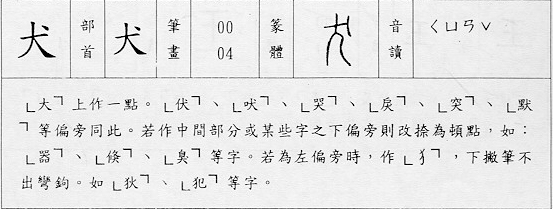 犬 部首 犬 筆畫 00 04 篆體 音讀 ㄑㄩㄢˇ
「大」上作一點。「伏」、「吠」、「哭」、「戾」、「突」、「默
」等偏旁同此。若作中間部分或某些字之下偏旁則改捺為頓點，如：
「器」、「倏」、「臭」等字。若為左偏旁時，作「犭」，下撇筆不
出彎鉤。如「狄」、「犯」等字。